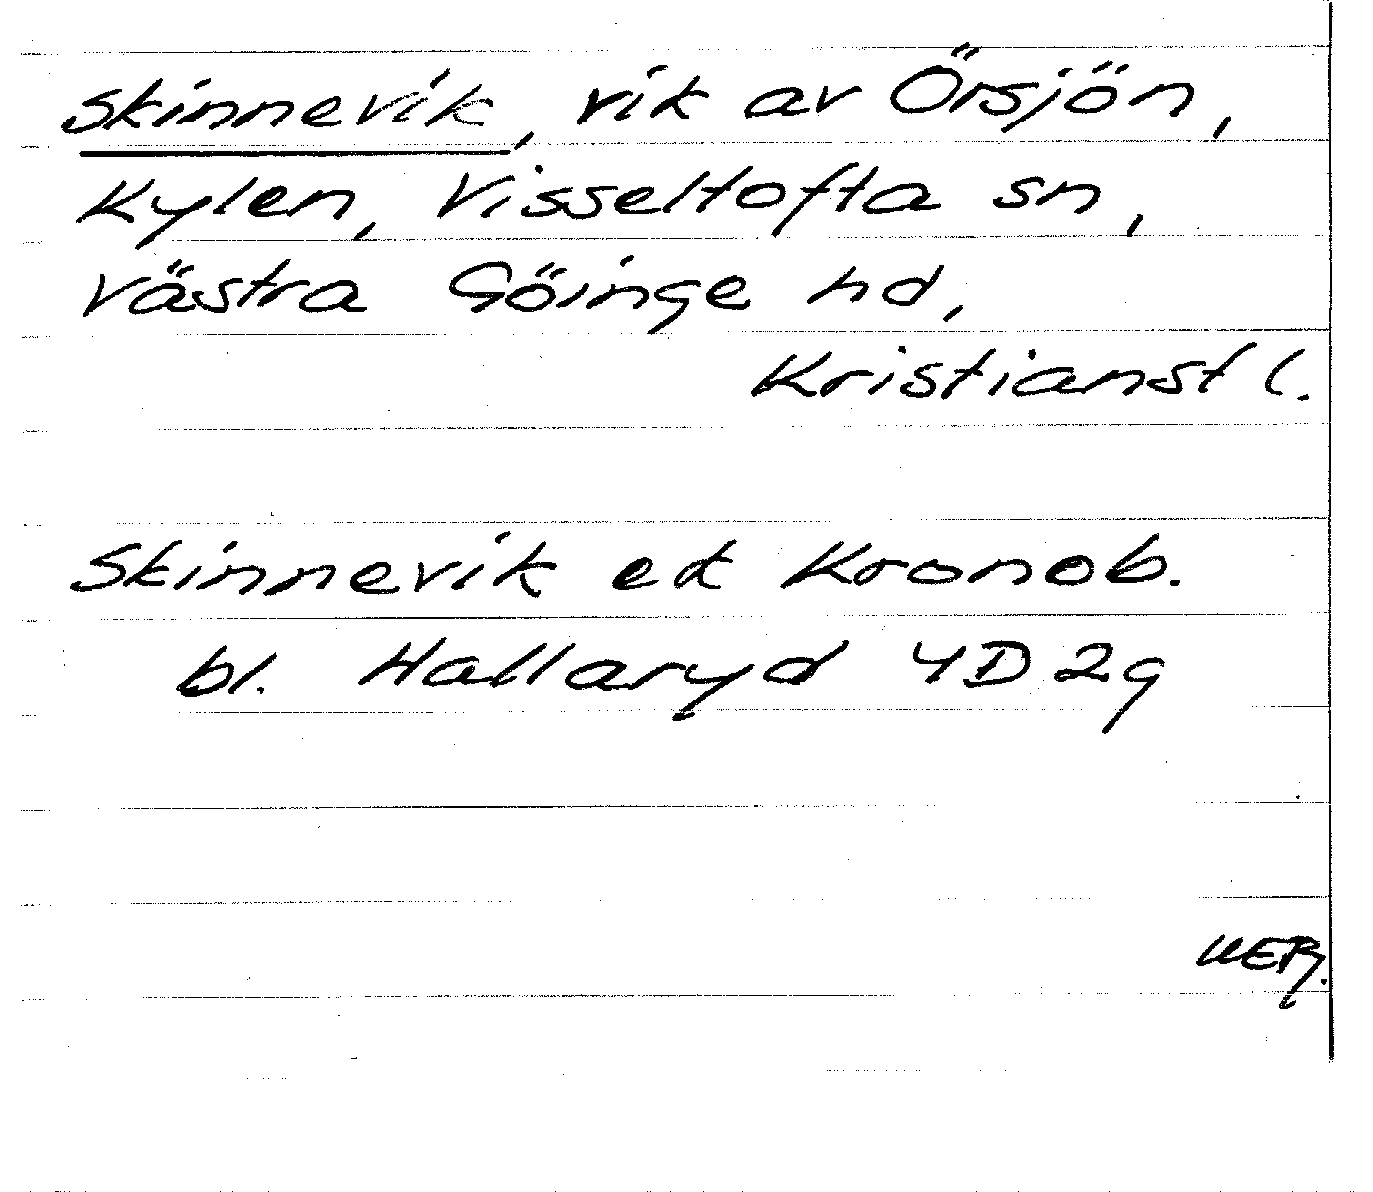 Skinnevik, vik av Örsjön,
Kylen, Visseltofta sn,
västra Göinge hd,
Kristianst l.
Skinnevik ek Kronob.
bl. Hallaryd 4D 2g